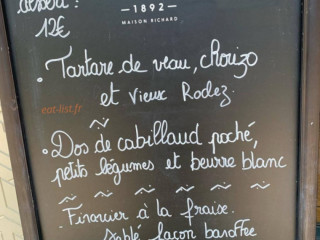 dessert :
12€
— 1892 —
MAISON RICHARD
• Tartare de veau, chorizo
et vieux Rodez.
eat-list.fr
• Dos de cabillaud poché,
petits légumes et beurre blanc
• Financier à la fraise.
Sablé façon banoffee